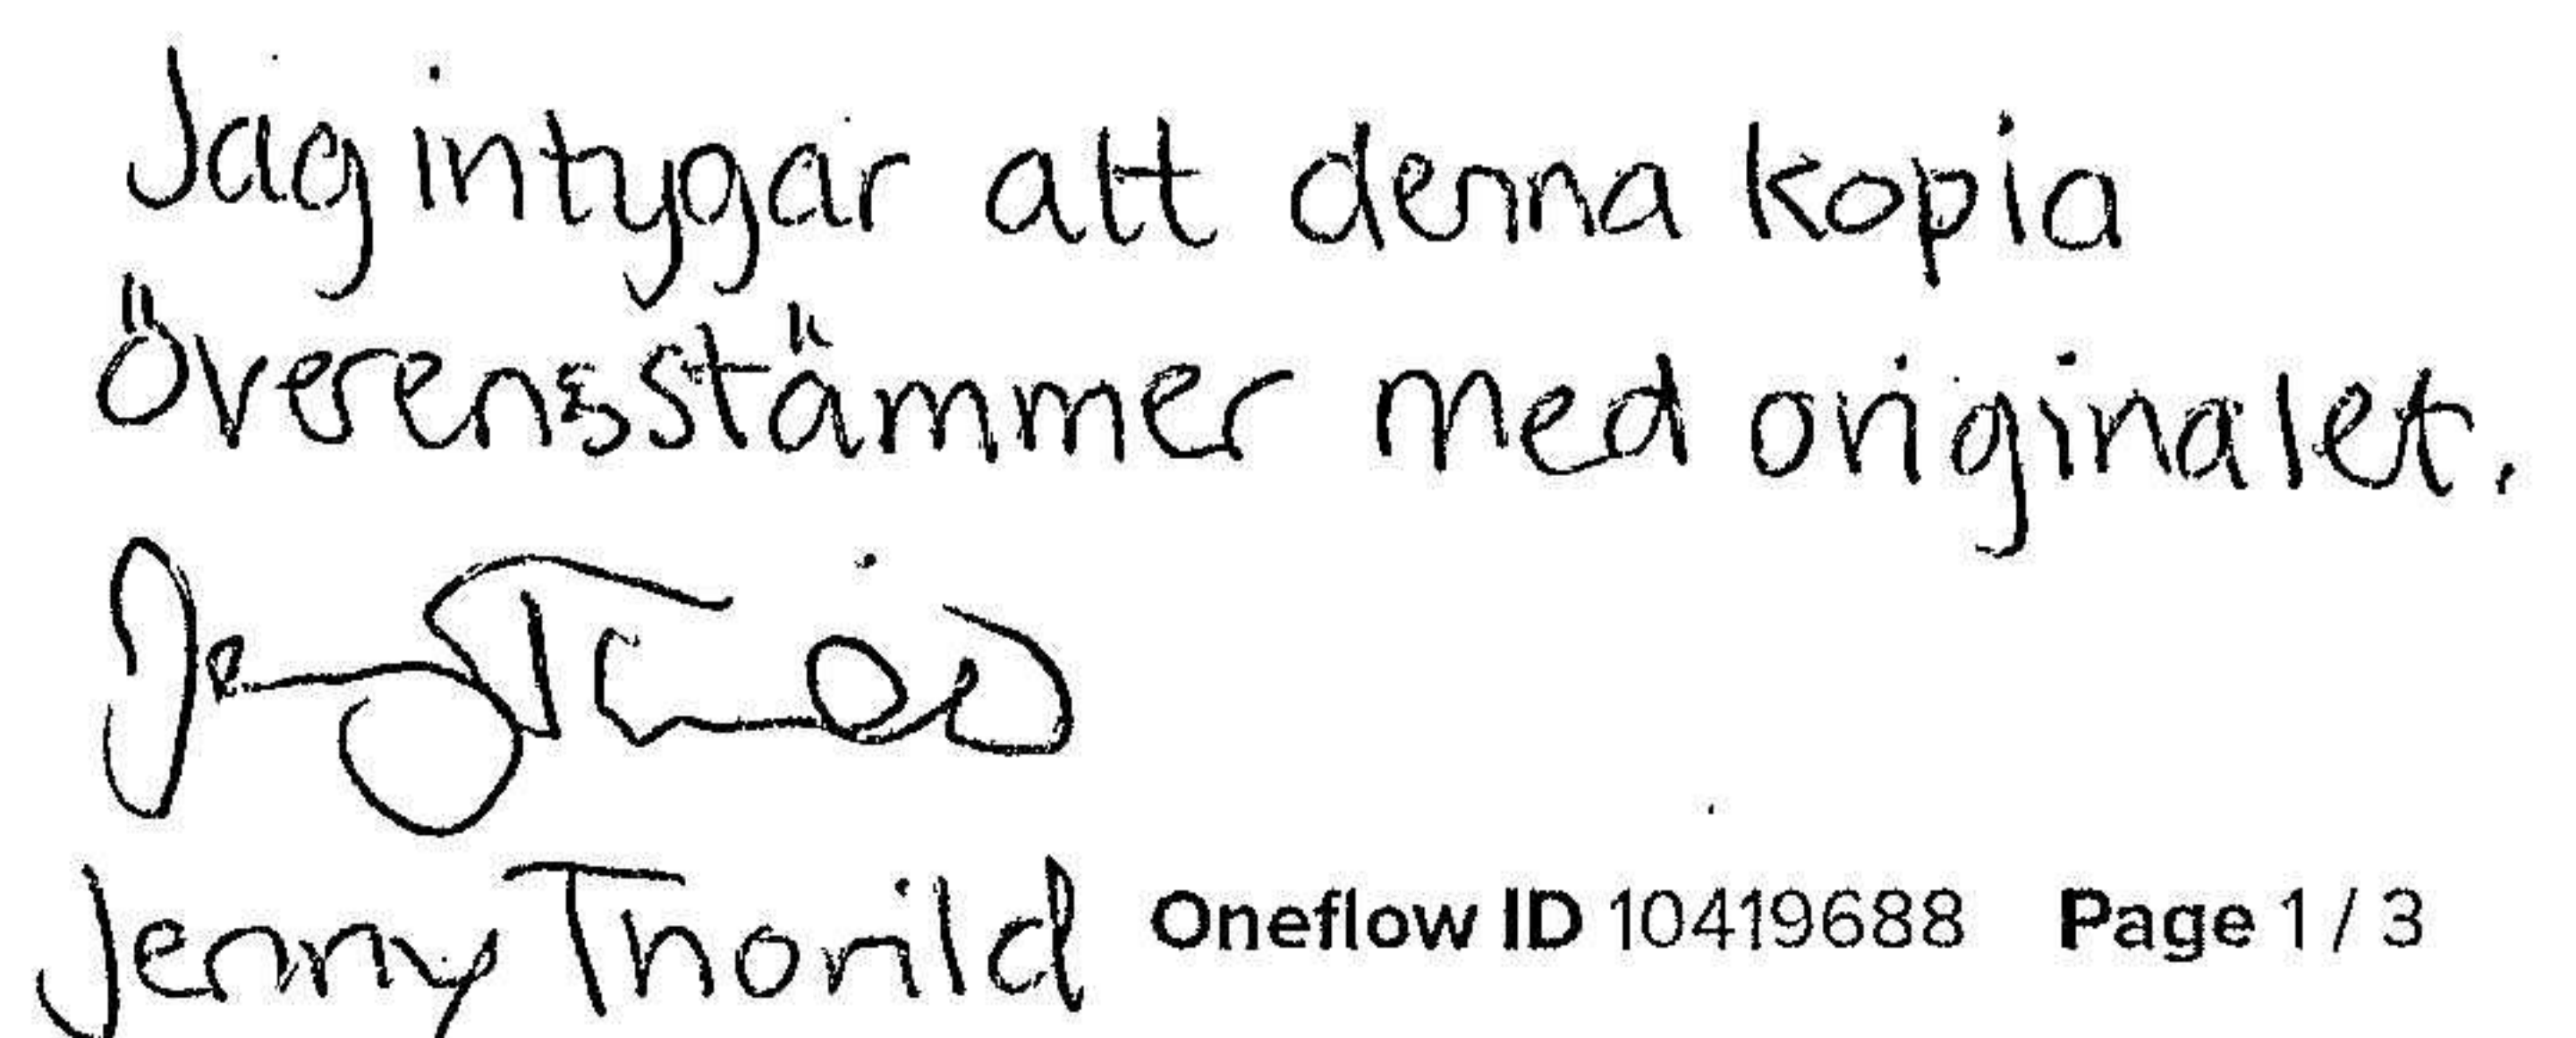 Jag intygar att denna kopia
överensstämmer med originalet.
Jenny Thorild
Jenny Thorild Oneflow ID 10419688 Page 1 / 3